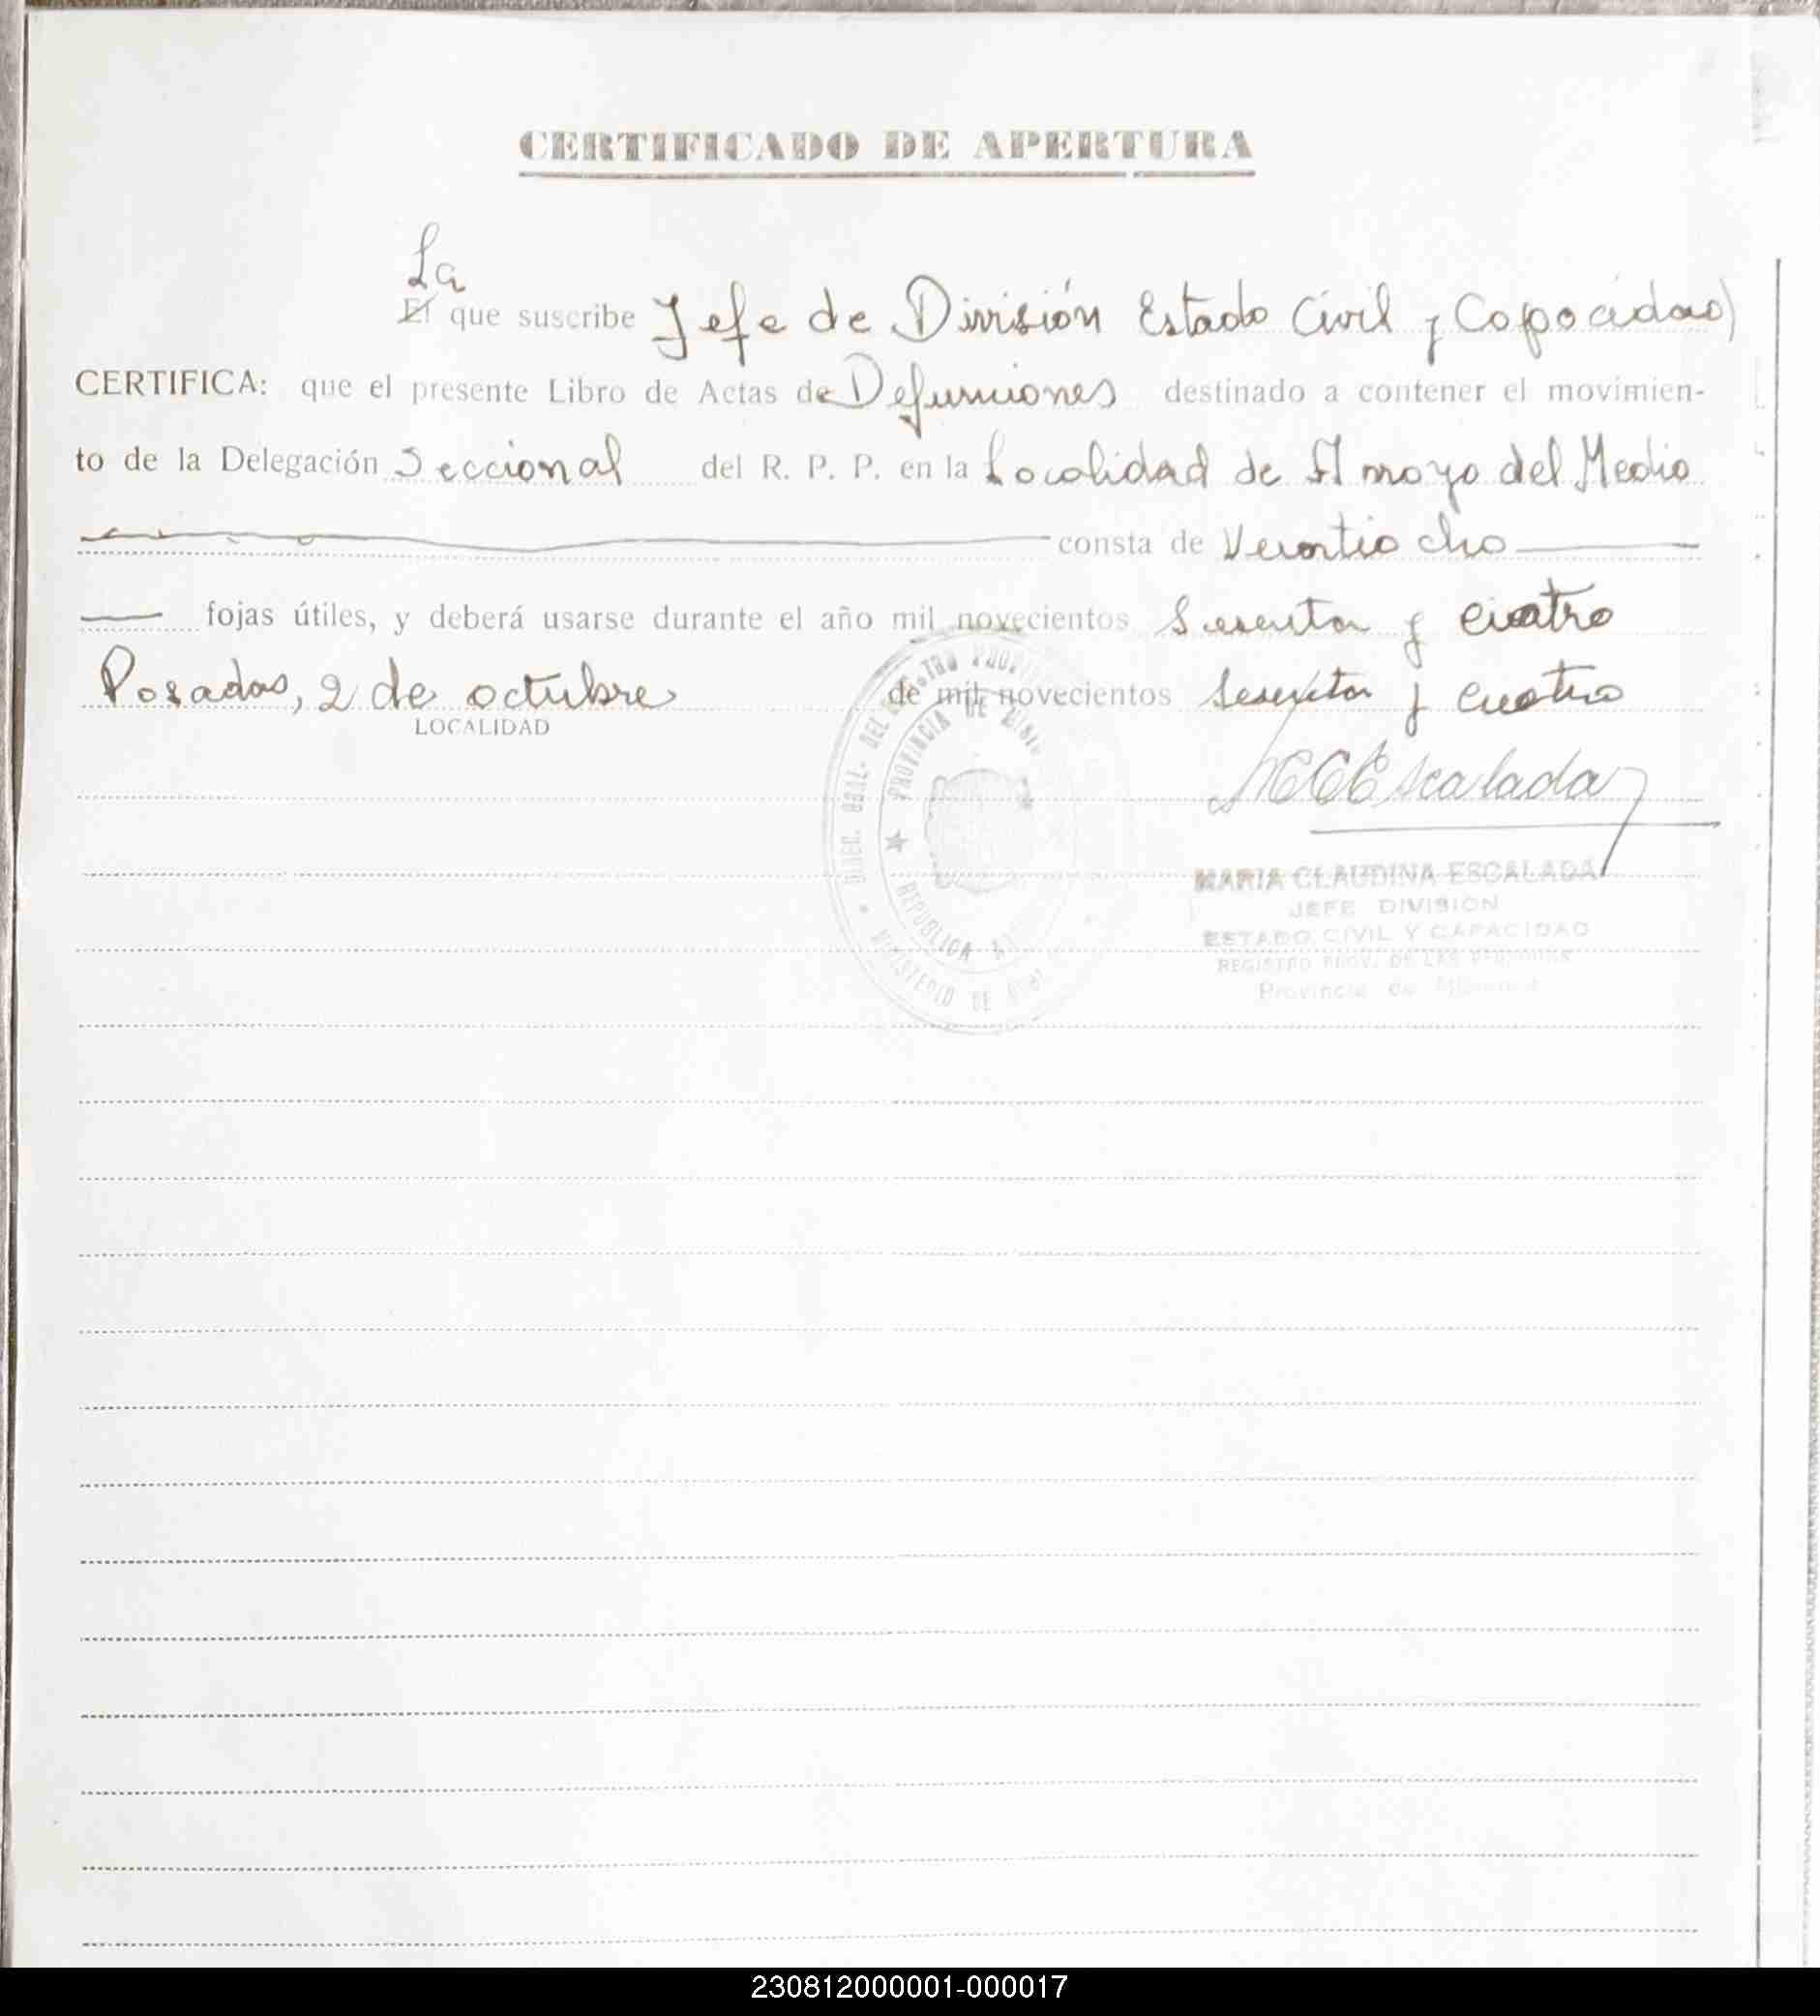 CERTIFICADO DE APERTURA
La
El que suscribe Jefe de División Estado Civil y Capacidad
CERTIFICA: que el presente Libro de Actas de Defunciones destinado a contener el movimien-
to de la Delegación Seccional del R. P. P. en la Localidad de Arroyo del Medio
consta de Veintiocho
fojas útiles, y deberá usarse durante el año mil novecientos Sesenta y cuatro
Posadas, 2 de octubre de mil novecientos Sesenta y cuatro
LOCALIDAD
Escalada
MARIA CLAUDINA ESCALADA
JEFE DIVISION
ESTADO CIVIL Y CAPACIDAD
REGISTRO PROV. DE LAS PERSONAS
Provincia de Misiones
PROVINCIA DE
REPUBLICA
MINISTERIO DE
230812000001-000017